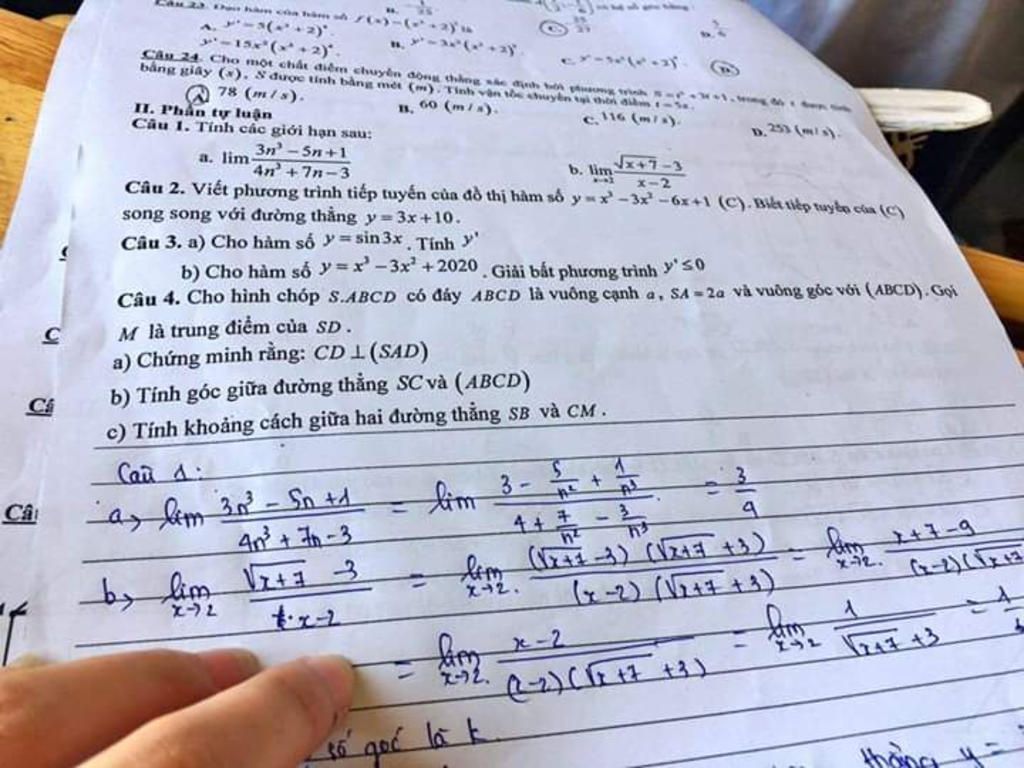 Câu 23. Đạo hàm của hàm số f(x) = (x³ + 2)⁵ là
A. y' = 5(x³ + 2)⁴. B. y' = 3x²(x³ + 2)⁴.
y' = 15x²(x³ + 2)⁴. D.
Câu 24. Cho một chất điểm chuyển động thẳng xác định bởi phương trình S = t³ + 3t + 1, trong đó t được tính
bằng giây (s), S được tính bằng mét (m). Tính vận tốc chuyển tại thời điểm t = 5s.
A 78 (m/s). B. 60 (m/s). C. 116 (m/s). D. 253 (m/s).
II. Phần tự luận
Câu 1. Tính các giới hạn sau:
a. lim (3n³ − 5n + 1)/(4n³ + 7n − 3) b. lim x→2 (√(x+7) − 3)/(x − 2)
Câu 2. Viết phương trình tiếp tuyến của đồ thị hàm số y = x³ − 3x² − 6x + 1 (C). Biết tiếp tuyến của (C)
song song với đường thẳng y = 3x + 10.
Câu 3. a) Cho hàm số y = sin 3x. Tính y'
b) Cho hàm số y = x³ − 3x² + 2020. Giải bất phương trình y' ≤ 0
Câu 4. Cho hình chóp S.ABCD có đáy ABCD là vuông cạnh a, SA = 2a và vuông góc với (ABCD). Gọi
M là trung điểm của SD.
a) Chứng minh rằng: CD ⊥ (SAD)
b) Tính góc giữa đường thẳng SC và (ABCD)
c) Tính khoảng cách giữa hai đường thẳng SB và CM.
Câu 1:
a, lim (3n³ − 5n + 1)/(4n³ + 7n − 3) = lim (3 − 5/n² + 1/n³)/(4 + 7/n² − 3/n³) = 3/4
b, lim x→2 (√(x+7) − 3)/(x − 2) = lim x→2 (√(x+7) − 3)(√(x+7) + 3)/(x − 2)(√(x+7) + 3) = lim x→2 (x + 7 − 9)/(x−2)(√(x+7)
= lim x→2 (x − 2)/(x−2)(√(x+7) + 3) = lim x→2 1/(√(x+7) + 3) = 1/
số góc là k
thẳng y =